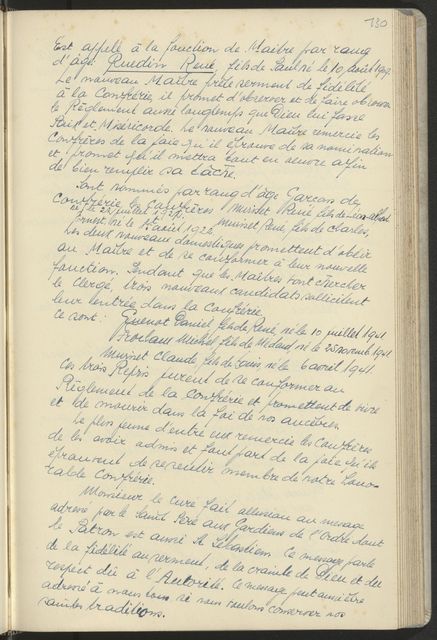 130
Est appelé à la fonction de Maître par rang
d'âge Ruedin René, fils de Paul né le 10 août 1919.
Le nouveau Maître prête serment de fidélité
à la Confrérie, il promet d'observer et de faire observer
le Règlement aussi longtemps que Dieu lui fasse
Paix et Miséricorde. Le nouveau Maître remercie les
Confrères de la joie qu'il éprouve de sa nomination
et promet qu'il mettra tout en oeuvre afin
de bien remplir sa tâche.
Sont nommés par rang d'âge Garçons de
Confrérie les confrères Muriset René fils de
né le 22 juillet 1921, Muriset René, fils de Charles,
Ernest né le août 1922.
Les deux nouveaux domestiques promettent d'obéir
au Maître et de se conformer à leur nouvelle
fonction. Pendant que les Maîtres vont chercher
le Clergé, trois nouveaux candidats sollicitent
leur entrée dans la Confrérie.
Ce sont: Guenot Daniel fils de René, né le 10 juillet 1941
Froclaux Michel, fils de Médard, né le 25 novemb. 1941
Muriset Claude, fils de Louis, né le 6 avril 1941.
Ces trois jurent de se conformer au
Règlement de la Confrérie et promettent de vivre
et de mourir dans la foi de nos ancêtres.
Le plus jeune d'entre eux remercie les Confrères
de les avoir admis et fait part de la joie qu'ils
éprouvent de se sentir membre de notre hono-
rable Confrérie.
Monsieur le Curé fait allusion au message
adressé par le Saint Père aux Gardiens de l'Ordre dont
le Patron est aussi St Sébastien. Ce message parle
de la fidélité au serment, de la crainte de Dieu et du
respect dû à l'Autorité. Ce message peut aussi être
adressé à nous tous si nous voulons conserver nos
saintes traditions.